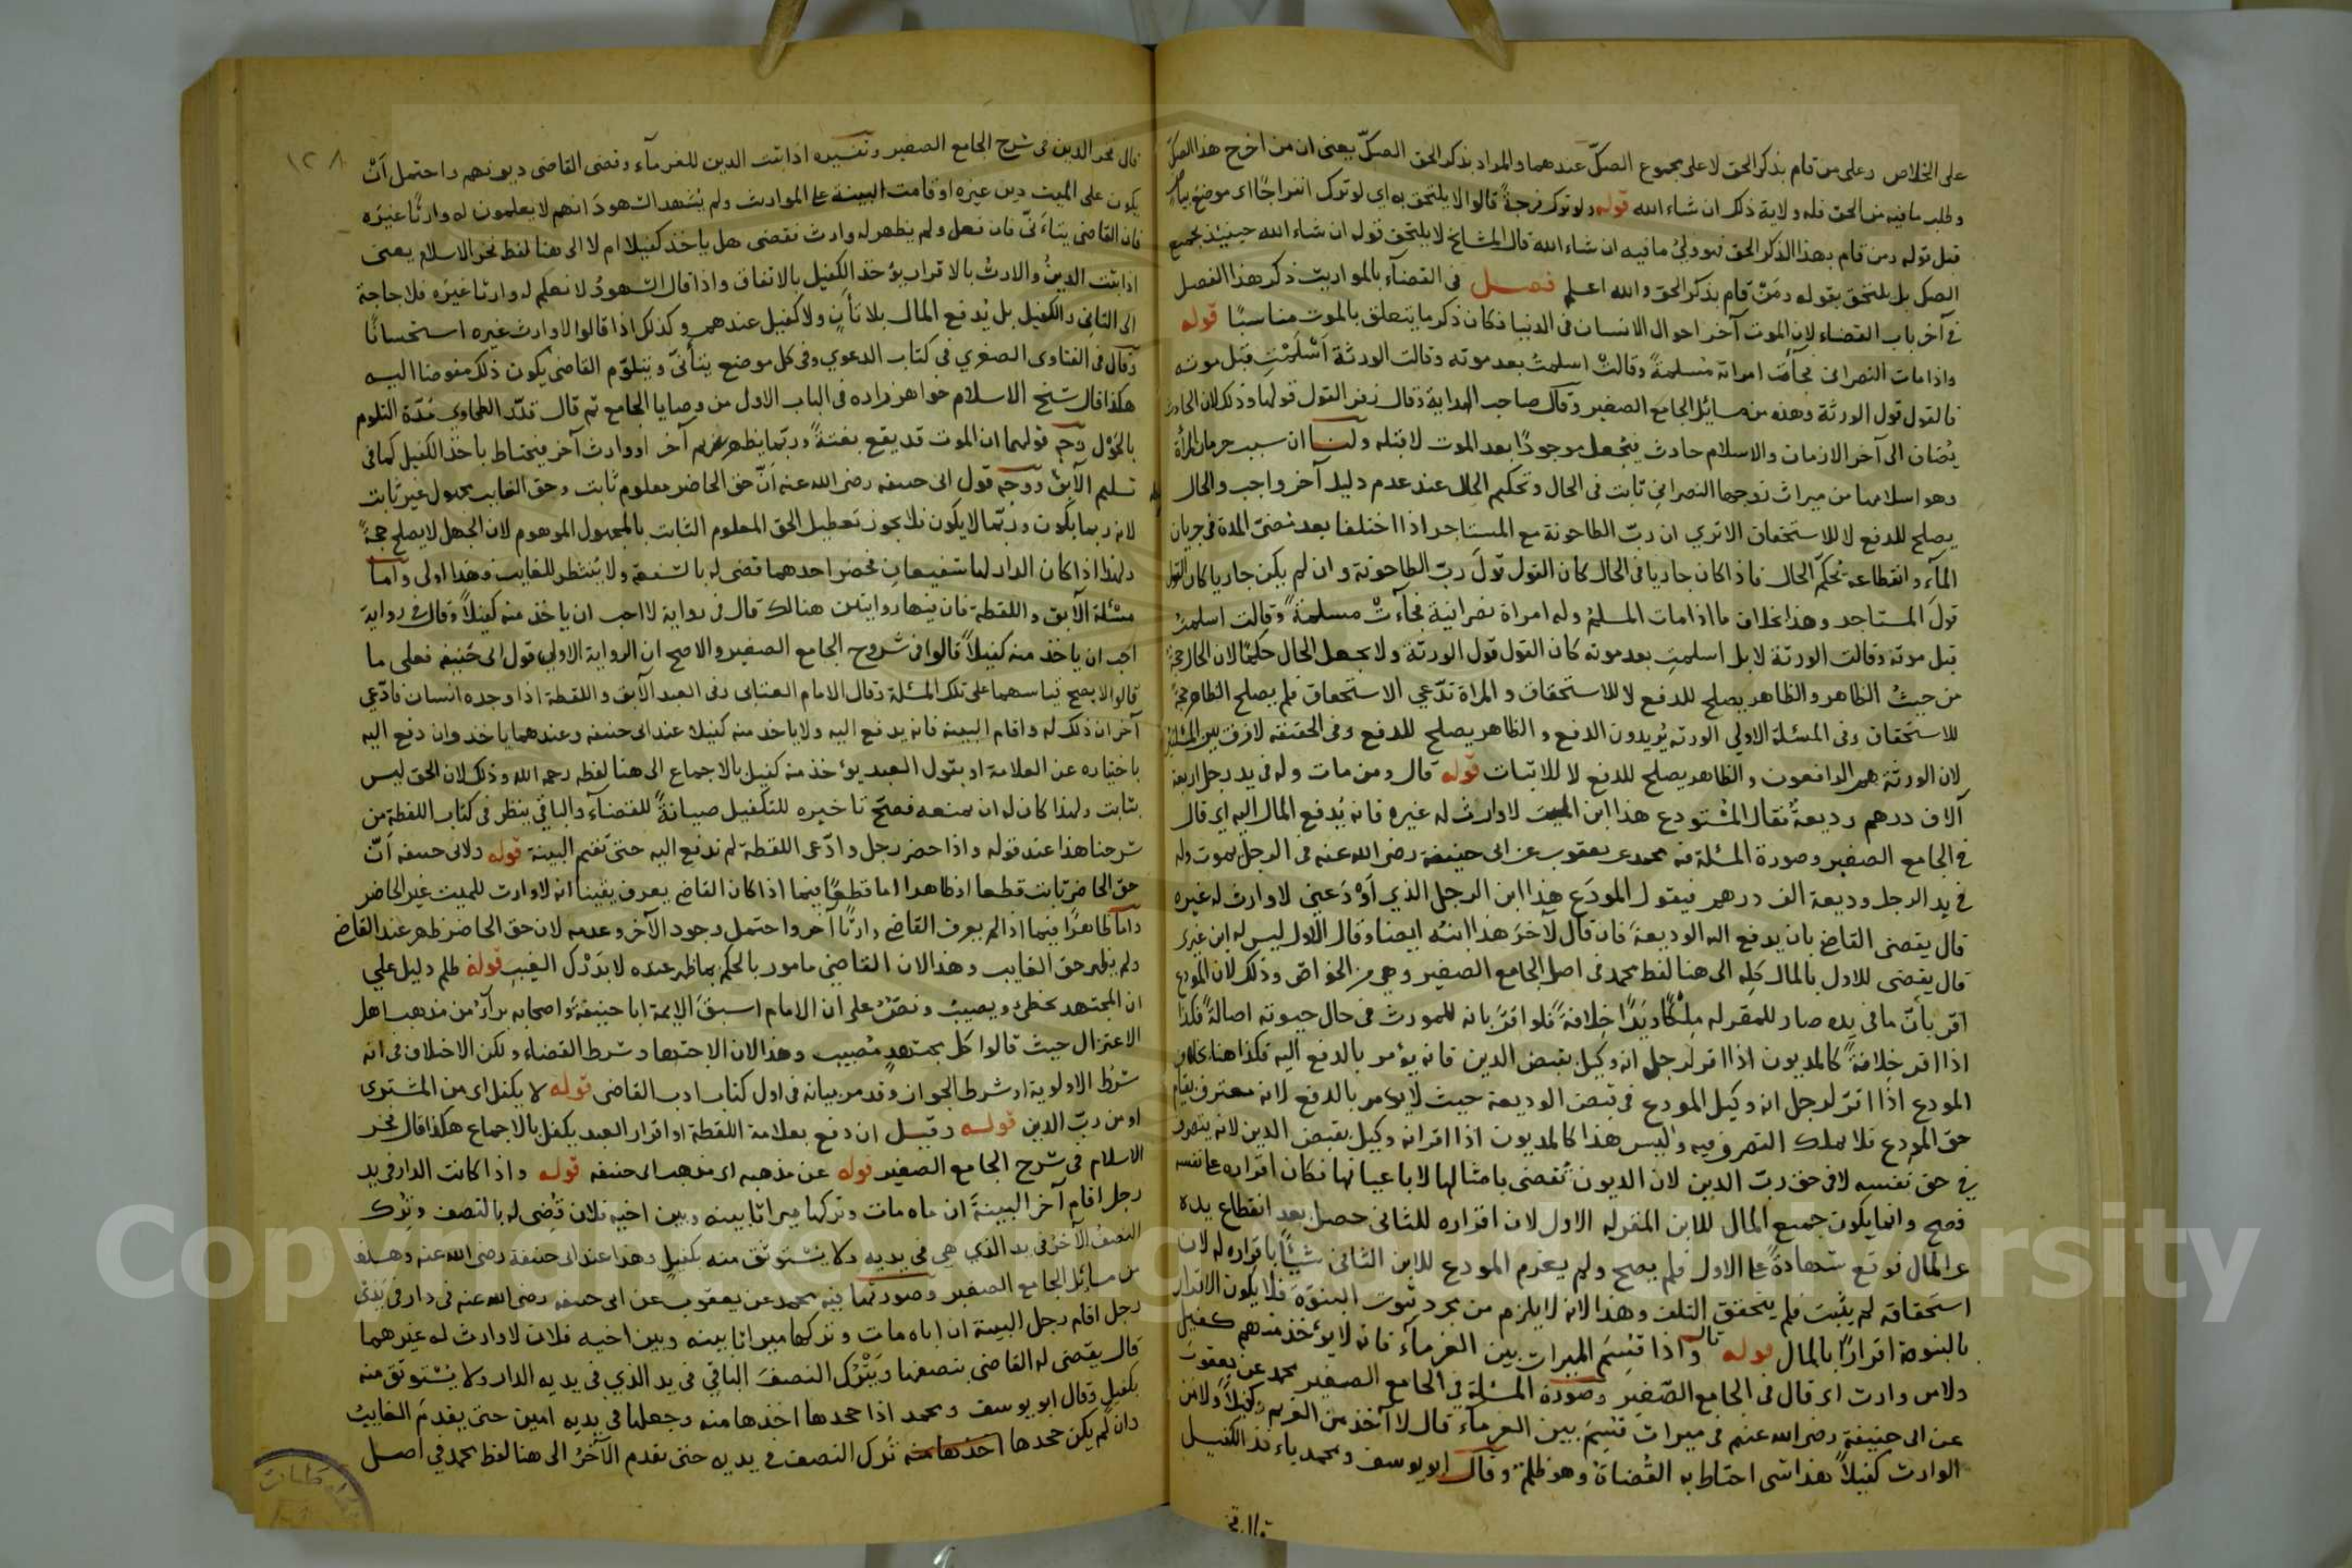 على الخلاص وعلى من قام بذكر الحق لا على مجموع الصكّ عندهما والمراد بذكر الحق الصكّ يعنى ان من اخرج هذا الصك
وطلب ما فيه من الحق فله ولاية ذلك ان شاء الله قوله ولو ترك فرجةً قالوا لا يلتحق به اي لو ترك انفراجًا اى موضع بياض
قبل قوله ومن قام بهذا الذكر الحق فهو ولىّ ما فيه ان شاء الله قال المشايخ لا يلتحق قوله ان شاء الله حينئذ بجميع
الصك بل يلتحق بقوله ومَنْ قام بذكر الحق والله اعلم فصل فى القضآء بالمواريث ذكر هذا الفصل
فى آخر باب القضاء لان الموت آخر احوال الانسان فى الدنيا فكان ذكر ما يتعلق بالموت مناسبًا قوله
واذا مات النصرانى فجآءت امراته مُسلمةً وقالتْ اسلمتُ بعد موته وقالت الورثة اَسْلَمْتِ قبل موته
فالقول قول الورثة وهذه من مسائل الجامع الصغير وقال صاحب الهداية وقال زفر القول قولها وذلك لان الحادث
يُضاف الى آخر الازمان والاسلام حادث فيُجعل موجودًا بعد الموت لا قبله ولنا ان سبب حرمان المرأة
وهو اسلامها من ميراث زوجها النصرانى ثابت فى الحال وتحكيم الحال عند عدم دليل آخر واجب والحال
يصلح للدفع لا للاستحقاق الا ترى ان ربّ الطاحونة مع المستاجر اذا اختلفا بعد مُضىّ المدة فى جريان
المآء وانقطاعه يحكّم الحال فاذا كان جاريا فى الحال كان القول قولَ ربّ الطاحونة وان لم يكن جاريا كان القول
قولَ المستاجر وهذا بخلاف ما اذا مات المسلمُ وله امراة نصرانية فجآءتْ مسلمةً وقالت اسلمتُ
قبل موته وقالت الورثة لا بل اسلمتِ بعد موته كان القول قول الورثة ولا يجعل الحال حكمًا لان الحال حجة
من حيثُ الظاهر والظاهر يصلح للدفع لا للاستحقاق والمراة تدّعى الاستحقاق فلم يصلح الظاهر حجةً
للاستحقاق وفى المسئلة الاولى الورثه يُريدون الدفع والظاهر يصلح للدفع وفى الحقيقه لا فرق بين المسئلتين
لان الورثة هم الدافعون والظاهر يصلح للدفع لا للاثبات قوله قال ومن مات وله فى يد رجل اربعة
آلاف درهم وديعةً فقال المُسْتودع هذا ابن الميت لا وارث له غيره فانه يُدفع المال اليه اى قال
فى الجامع الصغير وصورة المسئلة فيه محمد عن يعقوب عن ابى حنيفة رضى الله عنه فى الرجل يموت وله
فى يد الرجل وديعة الف درهم فيقول المودَع هذا ابن الرجل الذي اَوْدَعنى لا وارث له غيره
قال يقضى القاضى بان يدفع اليه الوديعة فان قال لآخرَ هذا ابنُه ايضا وقال الاول ليس له ابن غيرى
قال يقضى للاول بالمال كلّه الى هنا لفظ محمد فى اصل الجامع الصغير وهى من الخواصّ وذلك لان المودع
اقر بأنّ ما فى يده صار للمقر له مِلْكًا ويَدًا خِلافةً فلو اقرّ بانه للمورث فى حال حيوته اصالةً فكذا
اذا اقر خِلافةً كالمديون اذا اقر لرجل انه وكيل بقبض الدين فانه يؤمر بالدفع اليه فكذا هنا بخلاف
المودع اذا اقرّ لرجل انه وكيل المودع فى قبض الوديعة حيث لا يؤمر بالدفع لانه معترف بقيام
حق المودع فلا يملك التصرف فيه وليس هذا كالمديون اذا اقر انه وكيل بقبض الدين لانه يتصرف
فى حق نفسه لا فى حق ربّ الدين لان الديون تُقضى بامثالها لا باعيانها فكان اقراره على نفسه
فصح وانما يكون جميع المال للابن المقر له الاول لان اقراره للثانى حصل بعد انقطاع يده
عن المال فوقع شهادةً على الاول فلم يصح ولم يغرم المودع للابن الثانى شيئًا باقراره له لان
استحقاقه لم يثبت فلم يتحقق التلف وهذا لانه لا يلزم من مجرد ثبوت البنوّة فلا يكون الاقرار
بالبنوة اقرارًا بالمال قوله قال واذا قُسِمَ الميراث بين الغرمآء فانه لا يؤخذ منهم كفيل
ولا من وارث اى قال فى الجامع الصّغير وصورة المسئلة فى الجامع الصغير محمد عن يعقوب
عن ابى حنيفة رضى الله عنهم فى ميراث قُسِمَ بين الغرمآء قال لا آخذ من الغريم كفيلًا ولا من
الوارث كفيلًا هذا شى احتاط به القُضاة وهو ظلم وقال ابو يوسف ومحمد ياخذ الكفيل
١٢٨
قال فخر الدين فى شرح الجامع الصغير وتفسيره اذا ثبت الدين للغرمآء وقضى القاضى ديونهم واحتمل اَنْ
يكون على الميت دين غيره او قامت البينة على المواريث ولم يُشهد الشهودَ انهم لا يعلمون له وارثًا غيرَه
فان القاضى يتاَنّى فان فعل ولم يظهر له وارث فقضى هل ياخذ كفيلا ام لا الى هنا لفظ فخر الاسلام يعنى
اذا ثبت الدينُ والارثُ بالاقرار يؤخذ الكفيل بالاتفاق واذا قال الشهودُ لا نعلم له وارثا غيرَه فلا حاجة
الى التانى والكفيل بل يُدفع المال بلا تأنٍّ ولا كفيل عندهم وكذلك اذا قالوا لا وارث غيره استحسانًا
وقال فى الفتاوى الصغرى فى كتاب الدعوى وفى كل موضع يتأنّى ويتلوّم القاضى يكون ذلك مفوضا اليه
هكذا قال شيخ الاسلام خواهر زاده فى الباب الاول من وصايا الجامع ثم قال قدّر الطحاوى مُدّة التلوم
بالحَوْل وجه قولهما ان الموت قد يقع بغتةً وربّما يظهر غريم آخر او وارث آخر فيحتاط باخذ الكفيل كما فى
تسليم الآبق ووجه قول ابى حنيفه رضى الله عنه اَنّ حق الحاضر معلوم ثابت وحق الغايب مجهول غير ثابت
لانه ربما يكون وربّما لا يكون فلا يجوز تعطيل الحق المعلوم الثابت بالمجهول الموهوم لان الجهل لا يصلح حجةً
ولهذا اذا كان الدار لها شفيعان فحضر احدهما قضى له بالشفعة ولا يُنتظر للغايب وهذا اولى واما
مسْئلة الآبق واللقطة فان فيها روايتين هنالك قال فى رواية لا احب ان ياخذ منه كفيلاً وقال فى رواية
احب ان ياخذ منه كفيلاً قالوا فى شروح الجامع الصغير والاصح ان الرواية الاولى قول ابى حَنيفة فعلى ما
قالوا لا يصح قياسهما على تلك المسئلة وقال الامام العتابى وفى العبد الآبق واللقطة اذا وجده انسان فادّعى
آخر ان ذلك له واقام البينة فانه يدفع اليه ولا ياخذ منه كفيلا عند ابى حنيفه وعندهما ياخذ وان دفع اليه
باخباره عن العلامة او بقول العبد يؤخذ منه كفيل بالاجماع الى هنا لفظه رحمه الله وذلك لان الحق ليس
بثابت ولهذا كان له ان يمنعه فصحّ تاخيره للتكفيل صيانةً للقضآء والباقى ينظر فى كتاب اللقطة من
شرحنا هذا عند قوله واذا حضر رجل وادّعى اللقطة لم تدفع اليه حتى تقيم البينة قوله ولابى حنيفه اَنّ
حق الحاضر ثابت قطعا او ظاهرا اما قطعًا فيما اذا كان القاضى يعرف يقينا انه لا وارث للميت غير الحاضر
وامّا ظاهرًا فيما اذا لم يعرف القاضى وارثًا آخر واحتمل وجود الآخر وعدمه لان حق الحاضر ظهر عند القاضى
ولم يظهر حق الغايب وهذا لان القاضى مامور بالحكم بما ظهر عنده لا بدَرْك الغيب قوله ظلم دليل على
ان المجتهد يخطئ ويصيب ونصّ على ان الامام اسبقَ الايمة ابا حنيفةَ واصحابه برآءُ من مذهب اهل
الاعتزال حيث قالوا كل مجتهدٍ مُصيب وهذا لان الاجتهاد شرط القضاء ولكن الاختلاف فى انه
شرْط الاولوية او شرط الجواز وقد مر بيانه فى اول كتاب ادب القاضى قوله لا يكفل اى من المشترى
او من ربّ الدين قوله وقيل ان دفع بعلامة اللقطة او اقرار العبد يكفل بالاجماع هكذا قال فخر
الاسلام فى شرح الجامع الصغير قوله عن مذهبه اى مذهب ابى حنيفه قوله واذا كانت الدار فى يد
رجل اقام آخر البينة ان اباه مات وتركها ميراثا بينه وبين اخيه فلان قُضِى له بالنصف وتُرك
النصفُ الآخرُ فى يد الذي هى فى يديه ولا يسْتوثق منه بكفيل وهذا عند ابى حنيفة رضى الله عنه وهذه
من مسائل الجامع الصغير وصورتها فيه محمد عن يعقوب عن ابى حنيفه رضى الله عنه فى دار فى يدَىْ
رجل اقام رجل البينة ان اباه مات وتركها ميراثا بينه وبين اخيه فلان لا وارث له غيرهما
قال يقضى له القاضى بنصفها ويَتْرُك النصفَ الباقى فى يد الذي فى يديه الدار ولا يسْتوثق منه
بكفيل وقال ابو يوسف ومحمد اذا جحدها اخذها منه وجعلها فى يديه امين حتى يقدمَ الغايبُ
وان لم يكن جحدها اخذها منه تُرك النصف فى يديه حتى يقدم الآخرُ الى هنا لفظ محمد فى اصل
Copyright © King Saud University